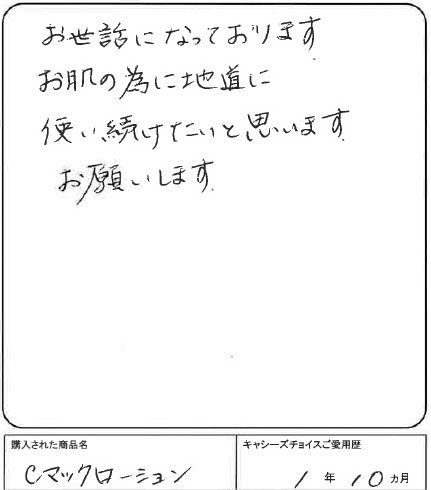 お世話になっております
お肌の為に地道に
使い続けたいと思います
お願いします
購入された商品名
Cマックローション
キャシーズチョイスご愛用歴
1年10ヵ月